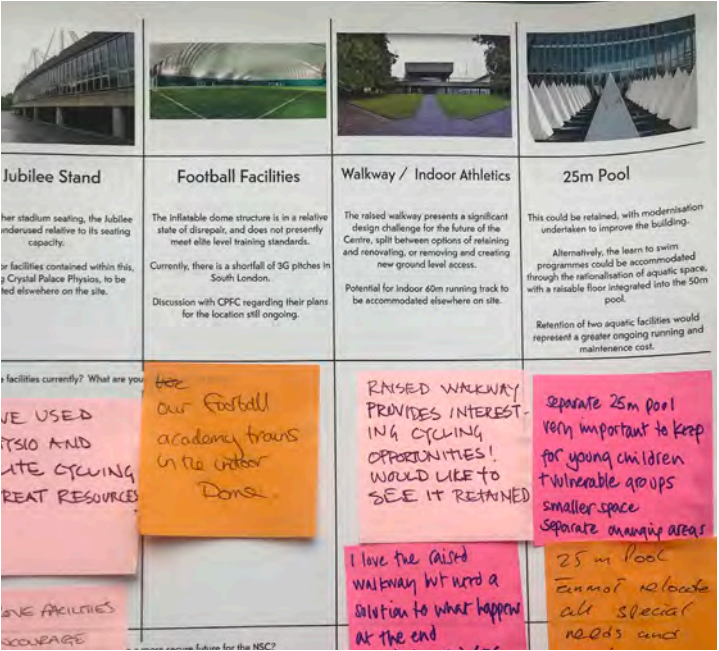 Jubilee Stand
her stadium seating, the Jubilee
underused relative to its seating
capacity.
or facilities contained within this,
g Crystal Palace Physios, to be
ted elsewhere on the site.
Football Facilities
The inflatable dome structure is in a relative
state of disrepair, and does not presently
meet elite level training standards.
Currently, there is a shortfall of 3G pitches in
South London.
Discussion with CPFC regarding their plans
for the location still ongoing.
Walkway / Indoor Athletics
The raised walkway presents a significant
design challenge for the future of the
Centre, split between options of retaining
and renovating, or removing and creating
new ground level access.
Potential for indoor 60m running track to
be accommodated elsewhere on site.
25m Pool
This could be retained, with modernisation
undertaken to improve the building.
Alternatively, the learn to swim
programmes could be accommodated
through the rationalisation of aquatic space,
with a raisable floor integrated into the 50m
pool.
Retention of two aquatic facilities would
represent a greater ongoing running and
maintenence cost.
e facilities currently? What are you
VE USED
YSIO AND
LITE CYCLING
REAT RESOURCES
OVE FACILITIES
COURAGE
our football
academy trains
in the indoor
Dome.
RAISED WALKWAY
PROVIDES INTEREST-
ING CYCLING
OPPORTUNITIES!
WOULD LIKE TO
SEE IT RETAINED
I love the raised
walkway but need a
solution to what happens
at the end
separate 25m pool
very important to keep
for young children
+ vulnerable groups
smaller space
separate changing areas
25 m Pool
cannot relocate
all special
needs and
more secure future for the NSC?